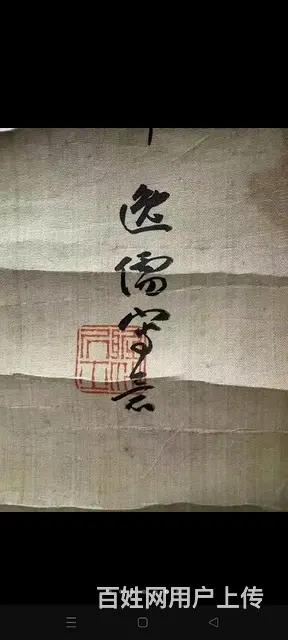 逸儒寫意
百姓网用户上传